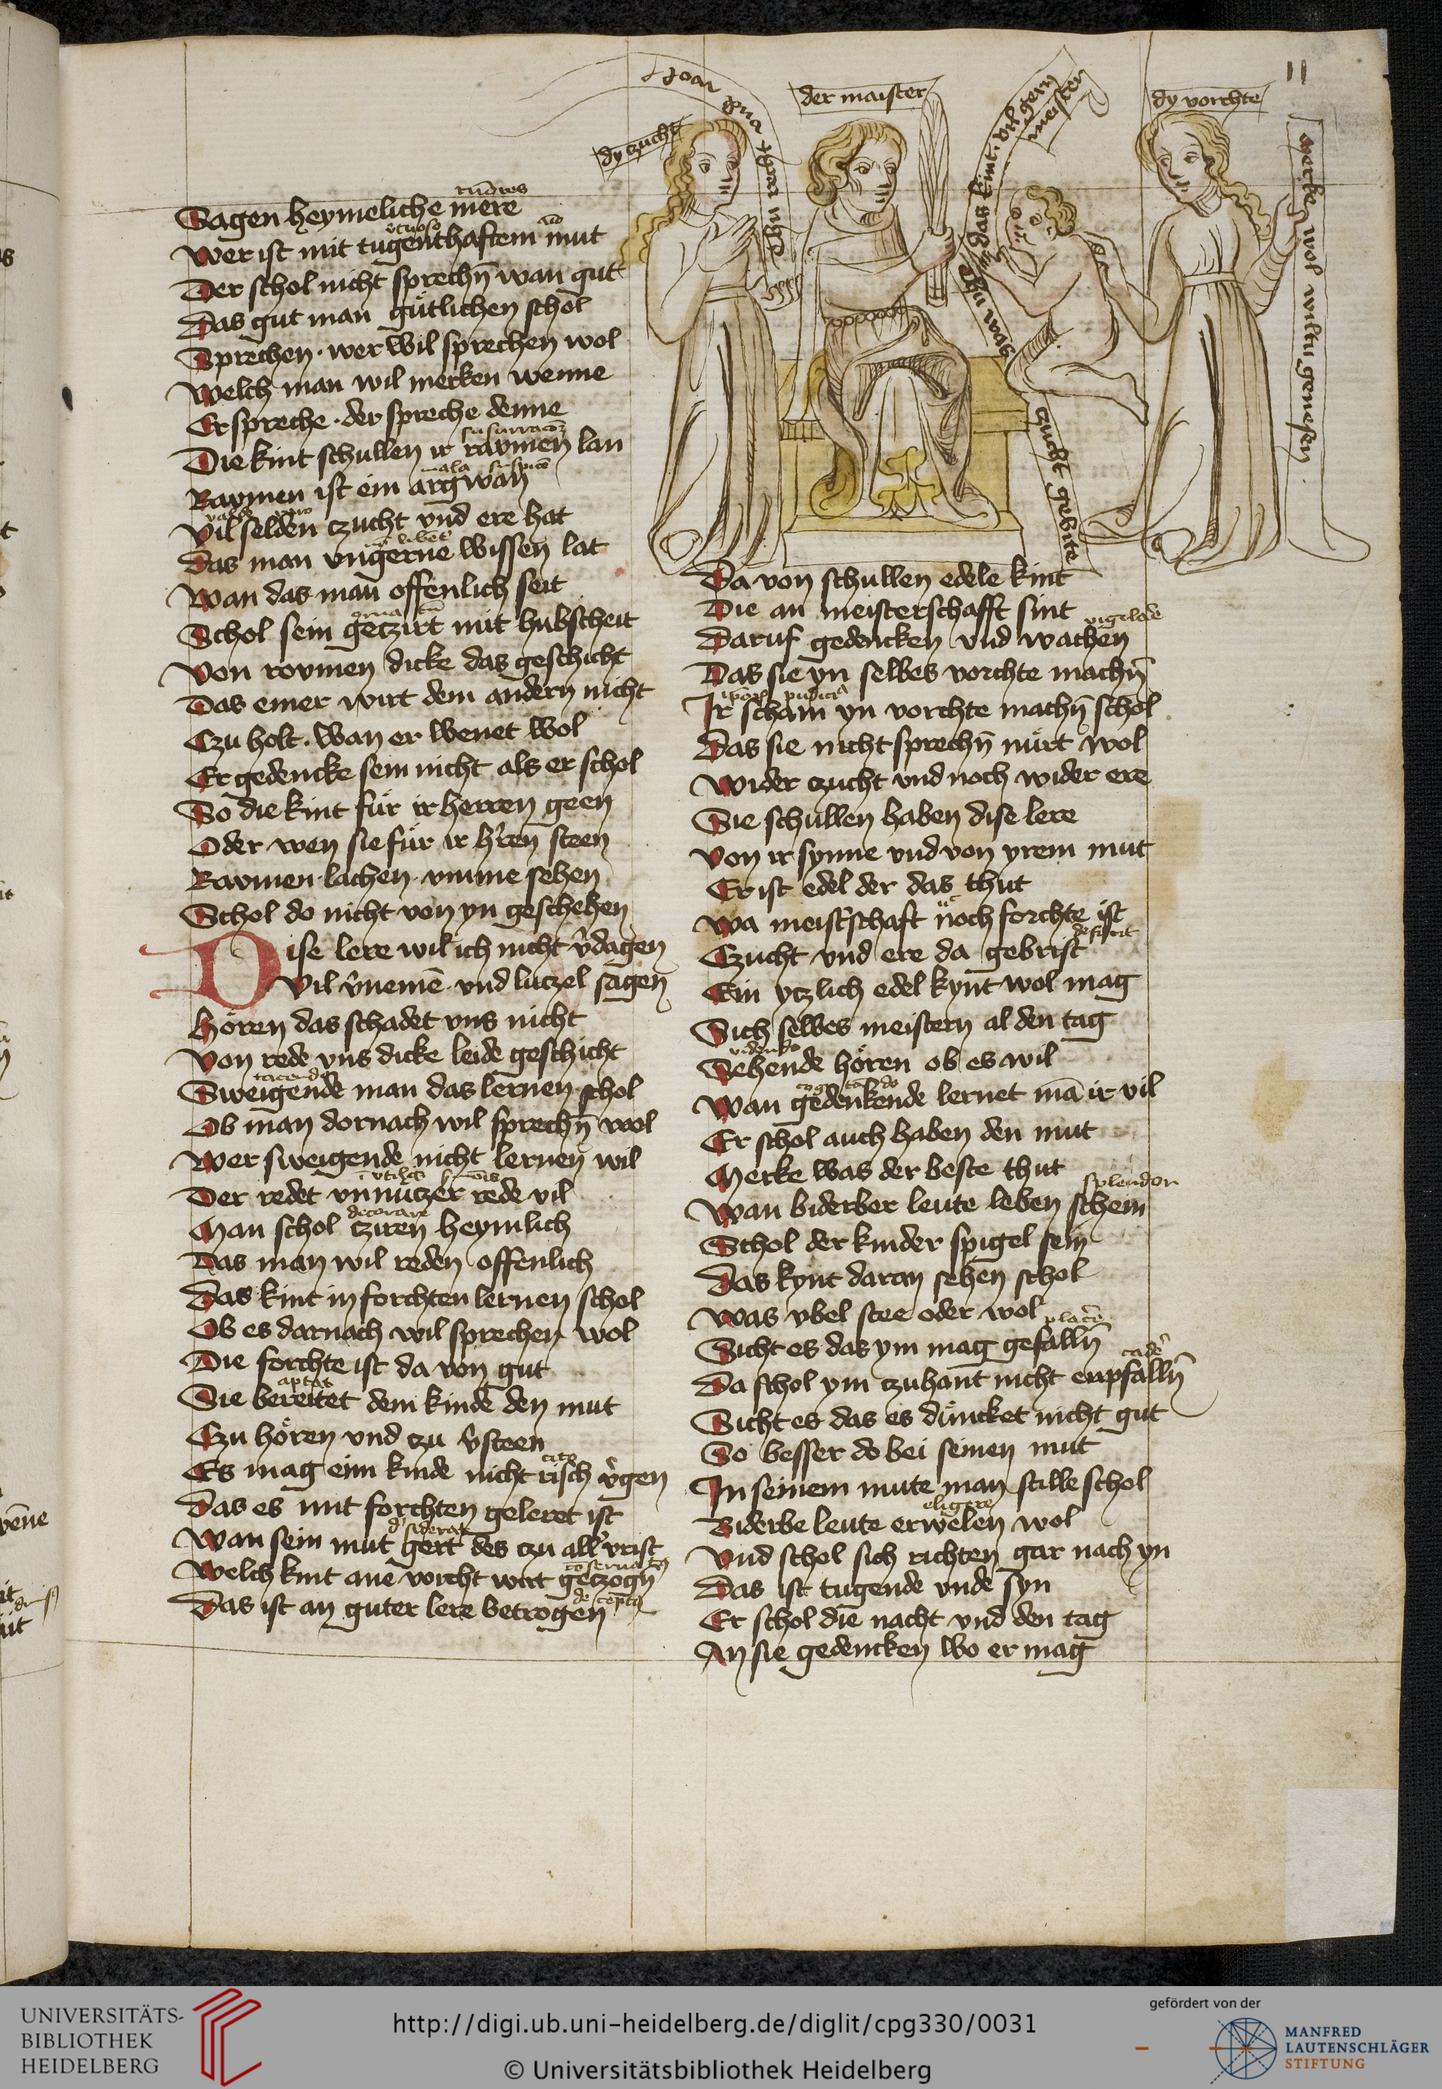 11
dy czucht
der maister
dy vorchte
Thu recht
Thu was
das kint vil gern
meister
czucht gebite
merke wol wiltu genesen
rumores
Sagen heymeliche mere
v̄tuoso
Wer ist mit tugenthaftem mut
Der schol nicht sprechn̄ wan gut
Das gut man gutlichen schol
Sprechen · wer wil sprechen wol
Welch man wil merken wenne
Er spreche · der spreche denne
Die kint schullen ir ravmen lan
mala suspicō
Ravmen ist ein argwan
Vil selden czucht vnd ere hat
Das man vngerne wissen lat
Wan das man offenlich seit
Schol sein geczirt mit hubscheit
Von rovmen dicke das geschicht
Das einer wirt dem andern nicht
Czu holt · wan er wenet wol
Er gedencke sein nicht als er schol
So die kint für ir herren geen
Oder wen sie für ir h'ren steen
Ravmen · lachen · vmme sehen
Schol do nicht von yn geschehen
Dise lere wil ich nicht v'dagen
Vil v'nemē vnd luczel sagen
Hören das schadet vns nicht
Von rede vns dicke leide geschicht
tacendo
Sweigende man das lernen schol
Ob man dornach wil sprechn̄ wol
Wer sweigende nicht lernen wil
Der redet vnnuczer rede vil
decorare
Man schol cziren heymlich
Das man wil reden offenlich
Das kint in forchten lernen schol
Ob es darnach wil sprechen wol
Die forchte ist da von gut
aptat
Sie bereitet dem kinde den mut
Czu hören vnd czu v'steen
cito
Es mag eim kinde nicht risch v'gen
Das es mit forchten geleret ist
Wan sein mut gert des czu all' vrist
Welch kint ane vorcht wirt geczogn̄
Das ist an guter lere betrogen
Da von schullen edele kint
Die an meisterschafft sint
Daruf gedencken vnd wachen
Das sie yn selbes vorchte machn̄
Ir scham yn vorchte machn̄ schol
Das sie nicht sprechn̄ nürt wol
Wider czucht vnd noch wider ere
Sie schullen haben dise lere
Von ir synne vnd von yrem mut
Er ist edel der das thut
Wa meist'schaft noch forchte ist
Czucht vnd ere da gebrist
Ein yczlich edel kynt wol mag
Sich selbes meistern al den tag
videndo
Sehende hören ob es wil
cogitando
Wan gedenkende lernet mā ir vil
Er schol auch haben den mut
Merke was der beste thut
splendor
Wan biderber leute leben schein
Schol der kinder spigel sein
Das kynt daran sehen schol
Was vbel stee oder wol
Sicht es das ym mag gefalln̄
Da schol ym czuhant nicht enpfalln̄
Sicht es das es duncket nicht gut
So besser do bei seinen mut
In seinem mute man stille schol
eligere
Biderbe leute erwelen wol
Vnd schol sich richten gar nach yn
Das ist tugende vnde syn
Er schol die nacht vnd den tag
An sie gedencken wo er mag
UNIVERSITÄTS-
BIBLIOTHEK
HEIDELBERG
http://digi.ub.uni-heidelberg.de/diglit/cpg330/0031
© Universitätsbibliothek Heidelberg
gefördert von der
MANFRED
LAUTENSCHLÄGER
STIFTUNG